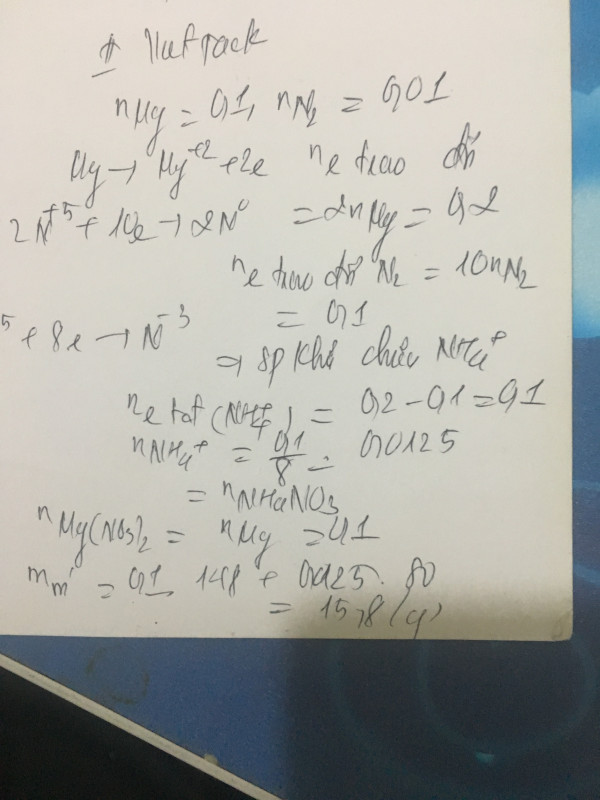 nMg = 0,1, nN2 = 0,01
Mg → Mg+2 + 2e ne trao đổi
2N+5 + 10e → 2N0 = 2nMg = 0,2
ne trao đổi N2 = 10nN2
= 0,1
5 + 8e → N-3
⇒ sp khử chứa NH4+
ne tạo (NH4+) = 0,2 - 0,1 = 0,1
nNH4+ = 0,1/8 = 0,0125
= nNH4NO3
nMg(NO3)2 = nMg = 0,1
mm' = 0,1 . 148 + 0,0125 . 80
= 15,8 (g)